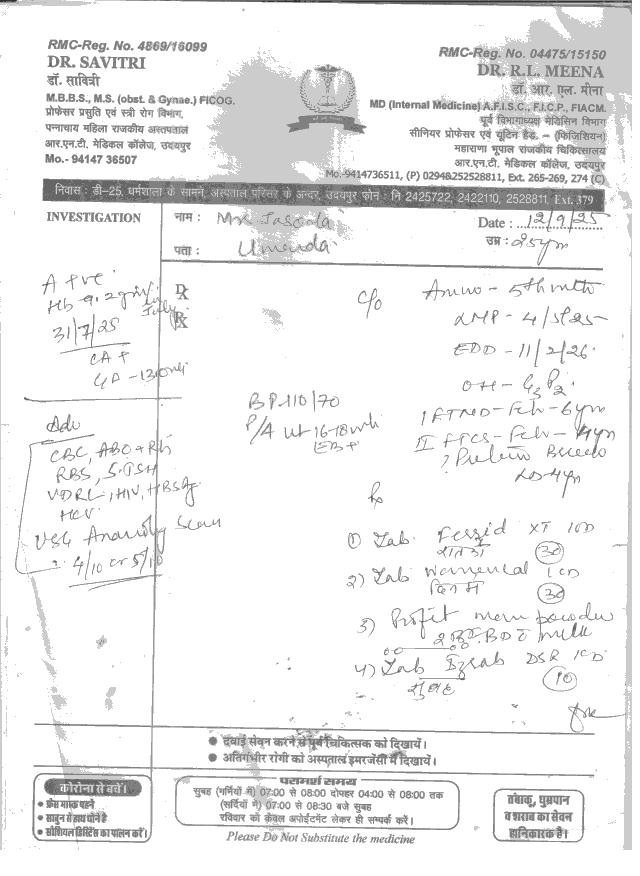 RMC-Reg. No. 4869/16099
DR. SAVITRI
डॉ. सावित्री
M.B.B.S., M.S. (obst. & Gynae.) FICOG.
प्रोफेसर प्रसुति एवं स्त्री रोग विभाग,
पन्नाधाय महिला राजकीय अस्तपताल
आर.एन.टी. मेडिकल कॉलेज, उदयपुर
Mo.- 94147 36507
RMC-Reg. No. 04475/15150
DR. R.L. MEENA
डॉ. आर. एल. मीना
MD (Internal Medicine) A.F.I.S.C., F.I.C.P., FIACM.
पूर्व विभागाध्यक्ष मेडिसिन विभाग
सीनियर प्रोफेसर एवं यूटिन हैड. – (फिजिशियन)
महाराणा भूपाल राजकीय चिकित्सालय
आर.एन.टी. मेडिकल कॉलेज, उदयपुर
Mo.-9414736511, (P) 0294&252528811, Ext. 265-269, 274 (C)
निवास : डी-25, धर्मशाला के सामने, अस्पताल परिसर के अन्दर, उदयपुर फोन : नि 2425722, 2422110, 2528811, Ext. 379
INVESTIGATION
नाम :
Date : 12/9/25
पता : Umenda
उम्र : 25yrs
Hb 9.2gm
31/7/25
C/o
5th mth
LMP - 4/5/25
EDD - 11/2/26
OH - G3P2
BP 110/70
P/A ut 16-18 wk
I FTND - Fch - 6yrs
II FTCS - Fch - 4yrs
LD-4yrs
Adv
CBC, ABO & Rh
RBS, S.TSH
VDRL, HIV, HBSAg
HCV
USG Anomaly Scan
4/10 or 5/10
Rx
1) Tab. XT 1OD
30
2) Tab 1OD
30
3) powder
BD milk
4) Tab DSR 1OD
सुबह 10
● दवाई सेवन करने से पूर्व चिकित्सक को दिखायें।
● अतिगंभीर रोगी को अस्पताल इमरजेंसी में दिखायें।
कोरोना से बचें।
• फ्रेस मास्क पहने
• साबुन से हाथ धोने है
• सोशियल डिस्टिेंस का पालन करें।
परामर्श समय
सुबह (गर्मियों में) 07:00 से 08:00 दोपहर 04:00 से 08:00 तक
(सर्दियों में) 07:00 से 08:30 बजे सुबह
रविवार को केवल अपोईटमेंट लेकर ही सम्पर्क करें।
तंबाकू, धुम्रपान
व शराब का सेवन
हानिकारक है।
Please Do Not Substitute the medicine